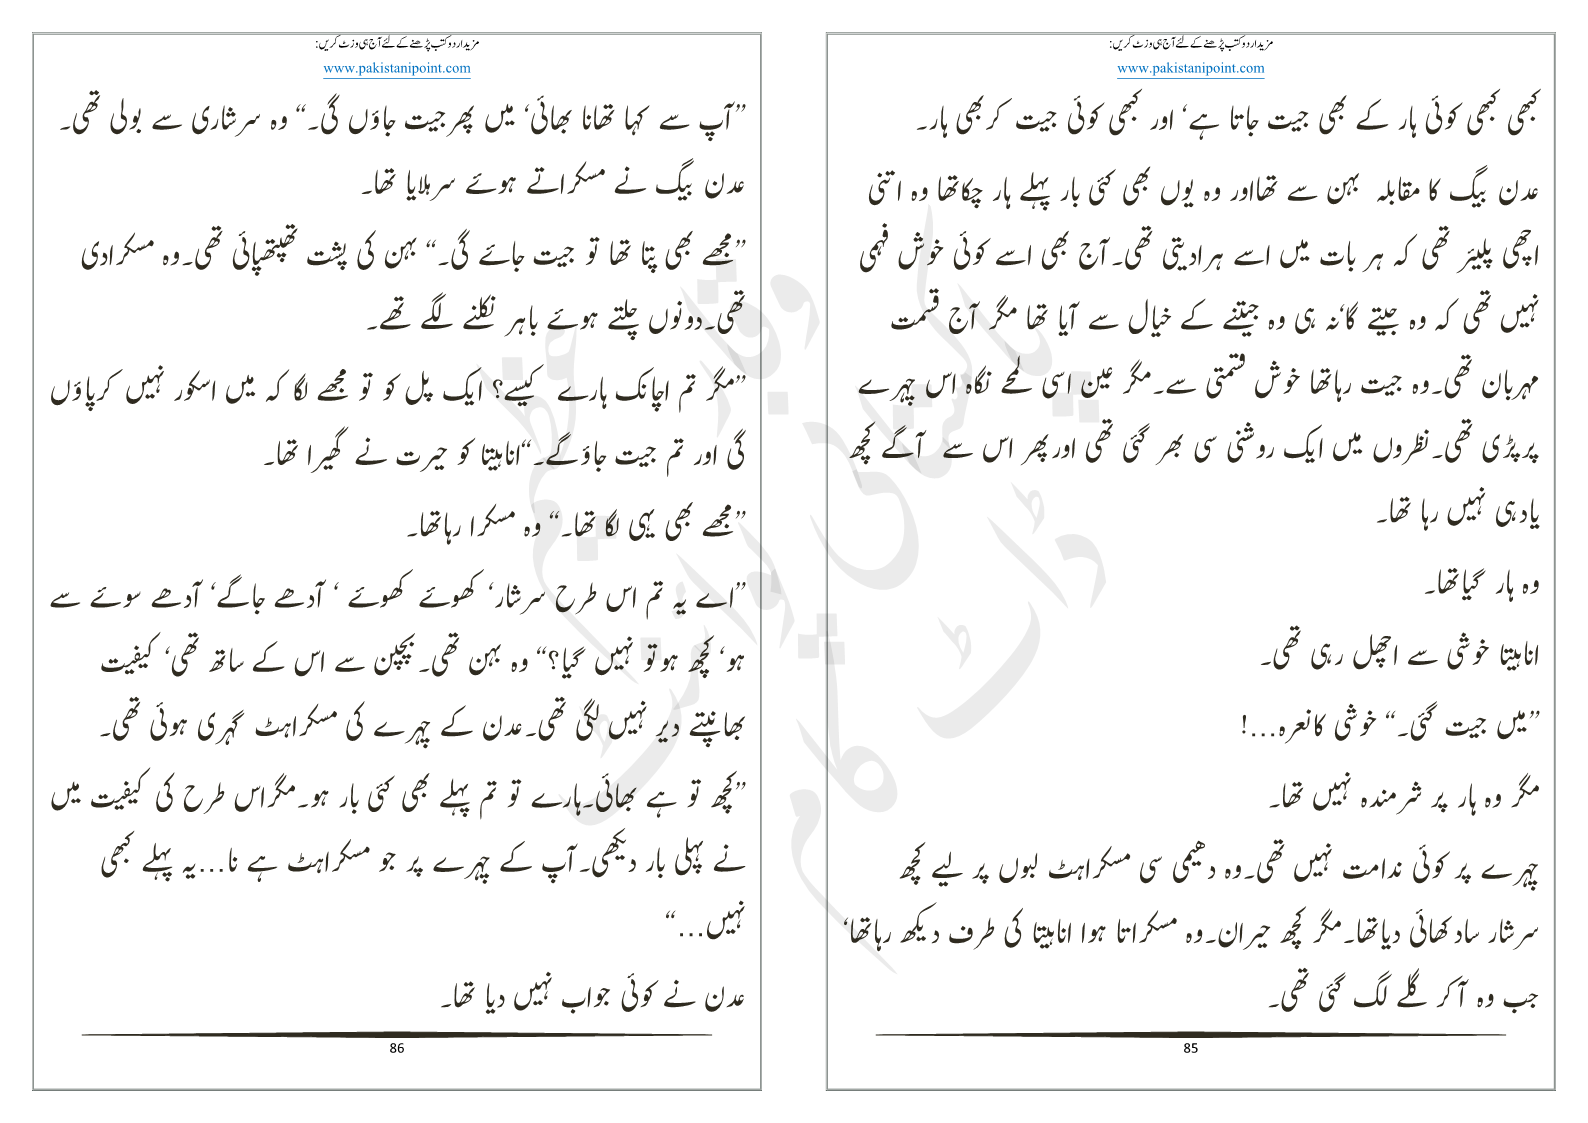 مزید اردو کتب پڑھنے کے لئے آج ہی وزٹ کریں:
www.pakistanipoint.com
کبھی کبھی کوئی ہار کے بھی جیت جاتا ہے‘ اور کبھی کوئی جیت کر بھی ہار۔
عدن بیگ کا مقابلہ بہن سے تھااور وہ یوں بھی کئی بار پہلے ہار چکاتھا وہ اتنی
اچھی پلیئر تھی کہ ہر بات میں اسے ہرادیتی تھی۔آج بھی اسے کوئی خوش فہمی
نہیں تھی کہ وہ جیتے گا‘نہ ہی وہ جیتنے کے خیال سے آیا تھا مگر آج قسمت
مہربان تھی۔وہ جیت رہاتھا خوش قسمتی سے۔مگر عین اسی لمحے نگاہ اس چہرے
پرپڑی تھی۔نظروں میں ایک روشنی سی بھر گئی تھی اورپھر اس سے آگے کچھ
یادہی نہیں رہا تھا۔
وہ ہار گیاتھا۔
اناہیتا خوشی سے اچھل رہی تھی۔
”میں جیت گئی۔“ خوشی کانعرہ...!
مگر وہ ہار پر شرمندہ نہیں تھا۔
چہرے پر کوئی ندامت نہیں تھی۔وہ دھیمی سی مسکراہٹ لبوں پر لیے کچھ
سرشار ساد کھائی دیاتھا۔مگر کچھ حیران۔وہ مسکراتا ہوا اناہیتا کی طرف دیکھ رہاتھا‘
جب وہ آکر گلے لگ گئی تھی۔
85
مزید اردو کتب پڑھنے کے لئے آج ہی وزٹ کریں:
www.pakistanipoint.com
”آپ سے کہا تھانا بھائی‘ میں پھرجیت جاؤں گی۔“ وہ سرشاری سے بولی تھی۔
عدن بیگ نے مسکراتے ہوئے سرہلایا تھا۔
”مجھے بھی پتا تھا تو جیت جائے گی۔“ بہن کی پشت تھپتھپائی تھی۔وہ مسکرادی
تھی۔دونوں چلتے ہوئے باہر نکلنے لگے تھے۔
”مگر تم اچانک ہارے کیسے؟ ایک پل کو تو مجھے لگا کہ میں اسکور نہیں کرپاؤں
گی اور تم جیت جاؤگے۔“اناہیتا کو حیرت نے گھیرا تھا۔
”مجھے بھی یہی لگا تھا۔“ وہ مسکرا رہاتھا۔
”اے یہ تم اس طرح سرشار‘ کھوئے کھوئے ‘ آدھے جاگے‘ آدھے سوئے سے
ہو‘ کچھ ہوتو نہیں گیا؟“ وہ بہن تھی۔بچپن سے اس کے ساتھ تھی‘ کیفیت
بھانپتے دیر نہیں لگی تھی۔عدن کے چہرے کی مسکراہٹ گہری ہوئی تھی۔
”کچھ تو ہے بھائی۔ہارے تو تم پہلے بھی کئی بار ہو۔مگراس طرح کی کیفیت میں
نے پہلی بار دیکھی۔آپ کے چہرے پر جو مسکراہٹ ہے نا...یہ پہلے کبھی
نہیں...“
عدن نے کوئی جواب نہیں دیا تھا۔
86